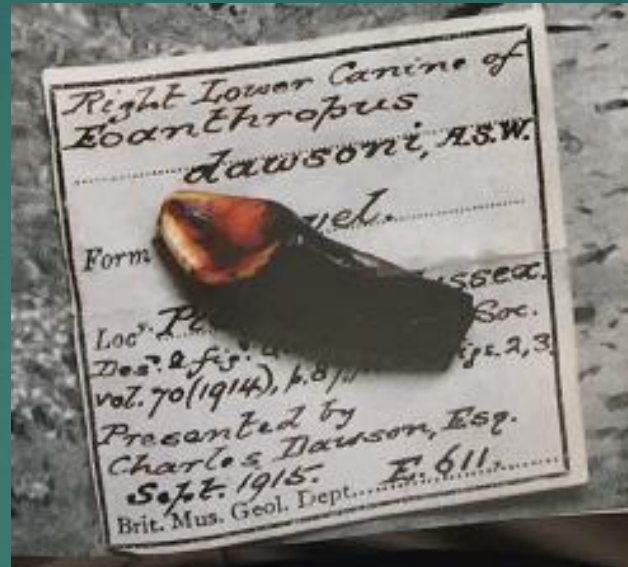 Right Lower Canine of
Eoanthropus
dawsoni, A.S.W.
Form
Loc^y.
Soc.
Des^d. & fig^d.
vol. 70 (1914),
Presented by
Charles Dawson, Esq.
Sept. 1915.
E. 611.
Brit. Mus. Geol. Dept.